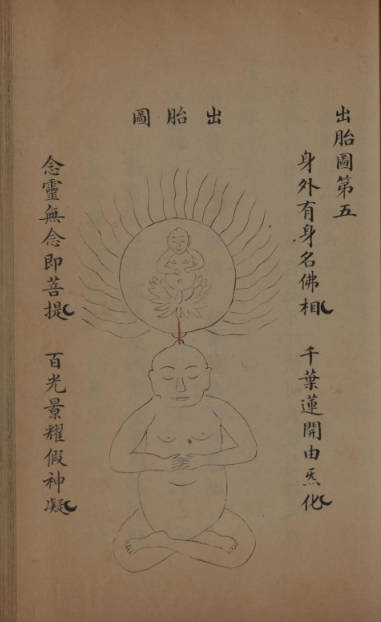 出胎圖第五
身外有身名佛相 千葉蓮開由炁化
出胎圖
念靈無念即菩提 百光景耀假神凝